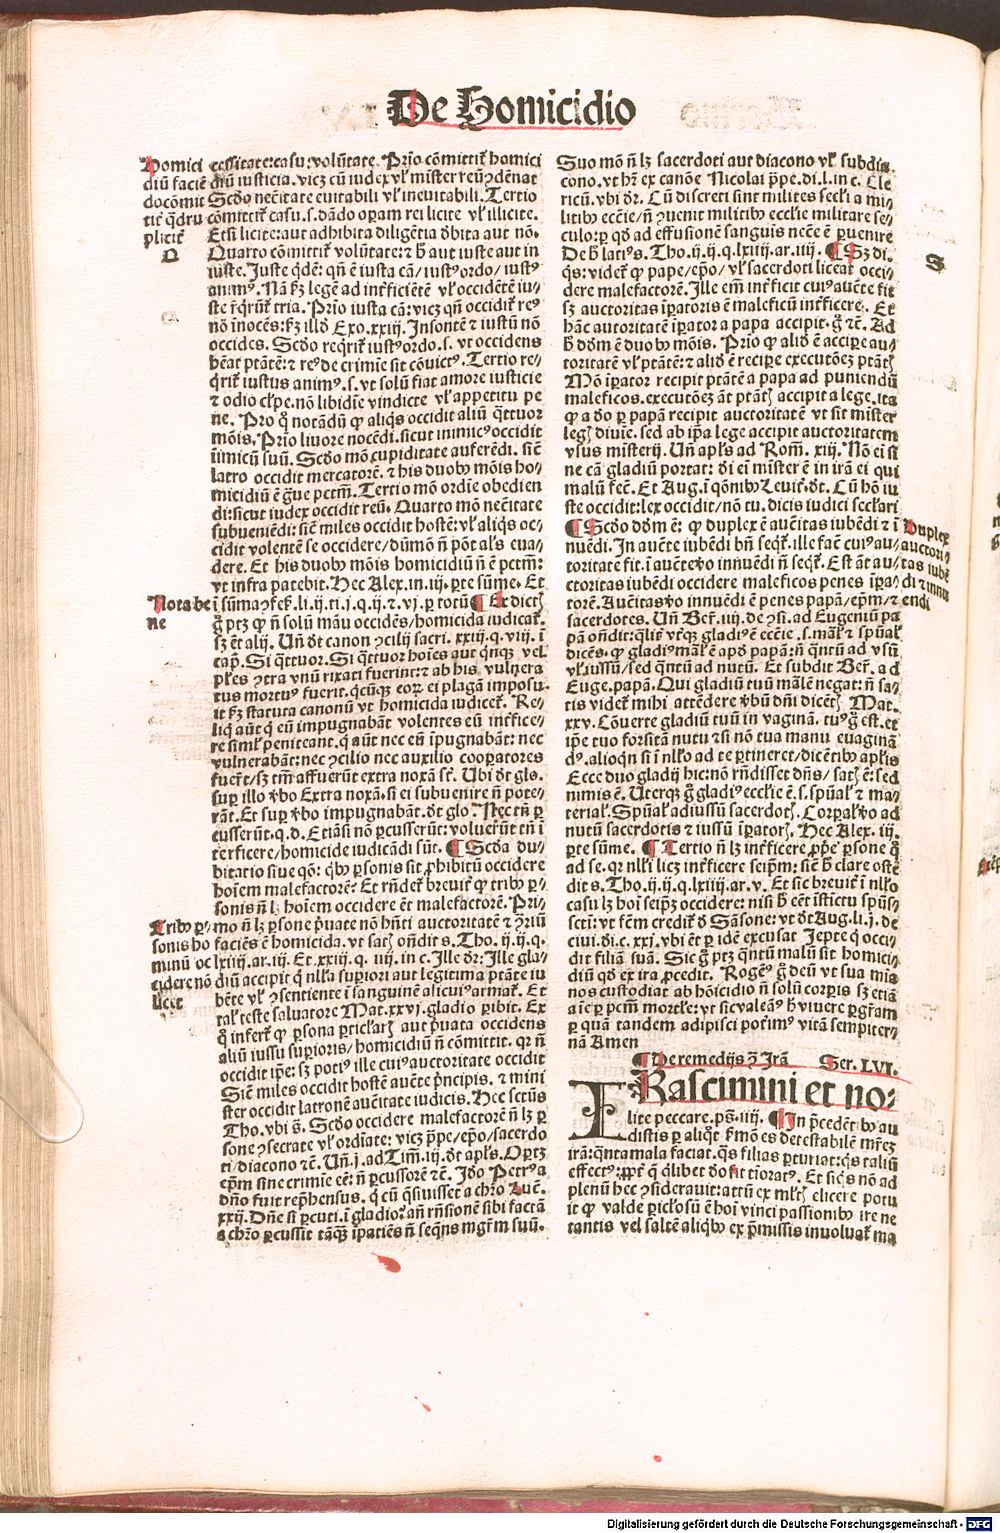 De Homicidio
Homici
diū faciē
do cōmit
tit̃ q̃dru
plicit̃
Q
cessitate: casu: volūtate. Prīo cōmittit̃ homici
diū iusticia. vicꝫ cū iudex vľ mīster reū ꝯdēnat
Scd̄o nec̄itate euitabili vľ ineuitabili. Tertio
cōmittit̃ casu .s. dādo oꝑam rei licite vľ illicite.
Etsi licite: aut adhibita diligētia d̄bita aut nō.
Quarto cōmittit̃ volūtate: ⁊ h̄ aut iuste aut in
iuste. Juste q̄dē: qn̄ ē iusta cā/ iustꝰ ordo/ iustꝰ
animꝰ. Nā ẜꝫ legē ad inẜficiētē vľ occidētē iu⸗
ste r̄qrūt̃ tria. Prīo iusta cā: vicꝫ qn̄ occidit̃ reꝰ
nō īnocēs: ẜꝫ illḋ Exo. xxiij. Insontē ⁊ iustū nō
occides. Scd̄o reqrit̃ iustꝰ ordo .s. vt occidens
hēat ptātē: ⁊ reꝰ de crimīe sit cōuictꝰ. Tertio re⸗
qrit̃ iustus animꝰ .s. vt solū fiat amore iusticie
⁊ odio cľpe. nō libidīe vindicte vľ appetitu pe
ne. Pro q̊ notādū ꝙ aliqs occidit aliū q̃ttuor
mōis. Prīo liuore nocēdi. sicut inimicꝰ occidit
īimicū suū. Scd̄o mō cupiditate auferēdi. sic̄
latro occidit mercatorē. ⁊ his duobꝰ mōis ho⸗
micidiū ē g̃ue pctm̄. Tertio mō ordīe obedien
di: sicut iudex occidit reū. Quarto mō nec̄itate
subueniēdi: sic̄ miles occidit hostē: vľ aliqs oc⸗
cidit volentē se occidere/ dūmō n̄ pōt aľs eua⸗
dere. Et his duobꝰ mōis homicidiū n̄ ē pctm̄:
vt infra patebit. Hec Alex. in. iij. ꝑte sūme. Et
Nota be
ne
ī sūma ꝯfeẜ. li. ij. ti. j. q. ij. ⁊ vj. ꝑ totū ¶ Ex dictꝭ
g̊ ptꝫ ꝙ n̄ solū māu occidēs/ homicida iudicat̃.
sꝫ ēt alij. Un̄ d̄t canon ꝯcilij sacri. xxiij. q. viij. ī
cap̊. Si q̃ttuor. Si q̃ttuor hoīes aut qnqꝫ vel
pľes ꝯtra vnū rixati fuerint: ⁊ ab his vulnera
tus mortuꝰ fuerit. qcūqꝫ eoꝝ ei plagā imposu⸗
it ẜꝫ statuta canonū vt homicida iudicet̃. Re⸗
liq̇ aūt q̇ eū impugnabāt volentes eū inẜfice⸗
re simľ peniteant. q̇ aūt nec eū īpugnabāt: nec
vulnerabāt: nec ꝯcilio nec auxilio cooꝑatores
fuer̄t/ sꝫ tm̄ affuerūt extra noxā sūt. Ubi d̄t glo.
suꝑ illo v̄bo Extra noxā. si ei subuenire n̄ pote⸗
rāt. Et suꝑ v̄bo impugnabāt. d̄t glo. Nec tn̄ ꝑ
cusserūt. q.d. Etiāsi nō ꝑcusserūt: voluerūt tn̄ ī
terficere/ homicide iudicādi sūt. ¶ Scd̄a du⸗
bitatio siue qō: qbꝰ ꝑsonis sit ꝓhibitū occidere
hoīem malefactorē? Et rn̄det̃ breuit̃ ꝙ tribꝰ ꝑ⸗
sonis n̄ lꝫ hoīem occidere ēt malefactorē. Pri⸗
Tribꝰ ꝑ⸗
sonis ho
minū oc
cidere nō
licet
mo n̄ lꝫ ꝑsone p̄uate nō hn̄ti auctoritatē ⁊ ꝯriū
faciēs ē homicida. vt satꝭ on̄dit s. Tho. ij. ij. q.
lxiiij. ar. iij. Et. xxiij. q. iiij. in c. Ille d̄r: Ille gla⸗
diū accipit q̇ nľla suꝑiori aut legitima ptāte iu
bēte vľ ꝯsentiente ī sanguinē alicuiꝰ armat̃. Et
taľ teste saluatore Mat. xxvi. gladio ꝑibit. Ex
q̊ infert̃ ꝙ ꝑsona ꝑticľarꝭ aut p̄uata occidens
aliū iussu suꝑioris/ homicidiū n̄ cōmittit. qr n̄
occidit ip̄e: sꝫ potiꝰ ille cuiꝰ auctoritate occidit
Sic̄ miles occidit hostē auc̄te p̄ncipis. ⁊ mini
ster occidit latronē auc̄itate iudicis. Hec sctūs
Tho. vbi s̄. Scd̄o occidere malefactorē n̄ lꝫ ꝑ
sone ꝯsecrate vľ ordīate: vicꝫ p̄pe/ ep̄o/ sacerdo
ti/ diacono ⁊c̄. Un̄. j. ad Tim̄. iij. d̄t apľs. Oportꝫ
ep̄m sine crimīe eē: n̄ ꝑcussorē ⁊c̄. Jdo Petrꝰ a
dn̄o fuit rep̄hensus. q̇ cū q̄siuisset a chr̄o Luc̄.
xxij. Dn̄e si ꝑcuti. ī gladio? añ rn̄sionē sibi factā
a chr̄o ꝑcussit tāqꝫ īpatiēs n̄ seqns mgr̄m suū.
Suo mō n̄ lꝫ sacerdoti aut diacono vľ subdia⸗
cono. vt hr̄ ex canōe Nicolai p̄pe. di. l. in c. Cle
ricū. vbi d̄r. Cū discreti sint milites secľi a mi⸗
litibꝰ eccľie/ n̄ ꝯuenit militibꝰ ecclie militare se⸗
culo: ꝑ qd̄ ad effusionē sanguīs nec̄e ē ꝑuenire
De h̄ latiꝰ s. Tho. ij. ij. q. lxiiij. ar. iiij. ¶ Sꝫ di.
S
q̄s: videt̃ ꝙ pape/ ep̄o/ vľ sacerdoti liceat occi⸗
dere malefactorē. Ille em̄ inẜficit cuiꝰ auc̄te fit
sꝫ auctoritas īꝑatoris ē maleficū inẜficere. Et
hāc autoritatē īꝑator a papa accipit. g̊ ⁊c̄. Ad
h̄ d̄dm̄ ē duobꝰ mōis. Prīo ꝙ aliḋ ē accipe au⸗
toritatē vľ ptātē: ⁊ aliḋ ē recipe executōeꝫ ptātꝭ
Mō īꝑator recipit ptātē a papa ad puniendū
maleficos. executōeꝫ āt ptātꝭ accipit a lege. ita
ꝙ a d̄o ꝑ papā recipit auctoritatē vt sit mīster
legꝭ diuīe. sed ab ip̄a lege accipit auctoritatem
vsus misterij. Un̄ apľs ad Rom̄. xiij. Nō ei̅ si
ne cā gladiū portat: d̄i ei̅ mīster ē in irā ei qui
malū fec̄. Et Aug. ī qōnibꝰ Leuit̃. d̄t. Cū hō iu
ste occidit: lex occidit/ nō tu. dicis iudici secľari
¶ Scd̄o d̄dm̄ ē: ꝙ duplex ē auc̄itas iubēdi ⁊ ī
Duplex
auctori⸗
tas iubē
di ⁊ innu
endi
nuēdi. In auc̄te iubēdi bn̄ seqt̃. ille fac̄ cuiꝰ au⸗
toritate fit. ī auc̄te v̊o innuēdi n̄ seqt̃. Est āt au⸗
ctoritas iubēdi occidere maleficos penes īꝑa⸗
torē. Auc̄itas v̊o innuēdi ē penes papā/ ep̄m/ ⁊
sacerdotes. Un̄ Ber̄. iiij. de ꝯsi. ad Eugeniū pa
pā on̄dit: qľit̃ vt̃qꝫ gladiꝰ ē eccľie .s. māľ ⁊ sp̄uaľ
dicēs. ꝙ gladiꝰ māľ ē apḋ papā: n̄ q̄ntū ad vsū
vľ iussū/ sed q̄ntū ad nutū. Et subdit Ber̄. ad
Euge. papā. Qui gladiū tuū māľē negat: n̄ sa⸗
tis videt̃ mihi attēdere v̄bū dn̄i dicētꝭ Mat.
xxv. Cōuerte gladiū tuū in vaginā. tuꝰ g̊ est. et
ip̄e tuo forsitā nutu ⁊ si nō tua manu euaginā
dꝰ. alioqn si ī nľlo ad te ꝑtineret/ dicētibꝰ apľis
Ecce duo gladij hic: nō rn̄disset dn̄s/ satꝭ ē: sed
nimis ē. Uterqꝫ g̊ gladiꝰ eccľie ē .s. sp̄uaľ ⁊ ma⸗
teriaľ. Sp̄uaľ ad iussū sacerdotꝭ. Corꝑaľ v̊o ad
nutū sacerdotis ⁊ iussū īꝑatorꝭ. Hec Alex. iij.
ꝑte sūme. ¶ Tertio n̄ lꝫ inẜficere ꝓpe ꝑsone q̊
ad se. qr nľli licꝫ inẜficere seip̄m: sic̄ h̄ clare ostē
dit s. Tho. ij. ij. q. lxiiij. ar. v. Et sic breuit̃ ī nľlo
casu lꝫ hoī seip̄ꝫ occidere: nisi h̄ eēt īstictu sp̄us⸗
scti: vt fēm credit̃ d̄ Sāsone: vt d̄t Aug. li. j. de
ciui. di. c. xxj. vbi ēt ꝑ idē excusat Jepte q̇ occi⸗
dit filiā suā. Sic g̊ ptꝫ q̄ntū malū sit homici⸗
diū qd̄ ex ira ꝓcedit. Rogeꝰ g̊ deū vt sua mīa
nos custodiat ab hōicidio n̄ solū corꝑis sꝫ etiā
aīe ꝑ pctm̄ mortľe: vt sic valeaꝰ h̄ viuere ꝑ gr̄am
ꝑ quā tandem adipisci poẜimꝰ vitā sempiter⸗
nā Amen
¶ De remedijs ꝯ̄ Irā Ser. LVI.
IRascimini et no⸗
lite peccare. ps̄. iiij. ¶ In p̄cedētibꝰ au
distis ꝑ aliqt̃ ẜmōes detestabilē mr̄eꝫ
irā: q̄nta mala faciat. q̄s filias ꝑturiat: q̄s taliū
effectꝰ: ꝓpt̃ q̊ qlibet d̄o sit tioratꝰ. Et siqs nō ad
plenū hec ꝯsiderauit: attn̄ ex mľtꝭ elicere potu
it ꝙ valde ꝑicľosū ē hoī vinci passionibꝰ ire ne
tantis vel saltē aliqbꝰ ex p̄missis inuoluat̃ ma
Digitalisierung gefördert durch die Deutsche Forschungsgemeinschaft - DFG